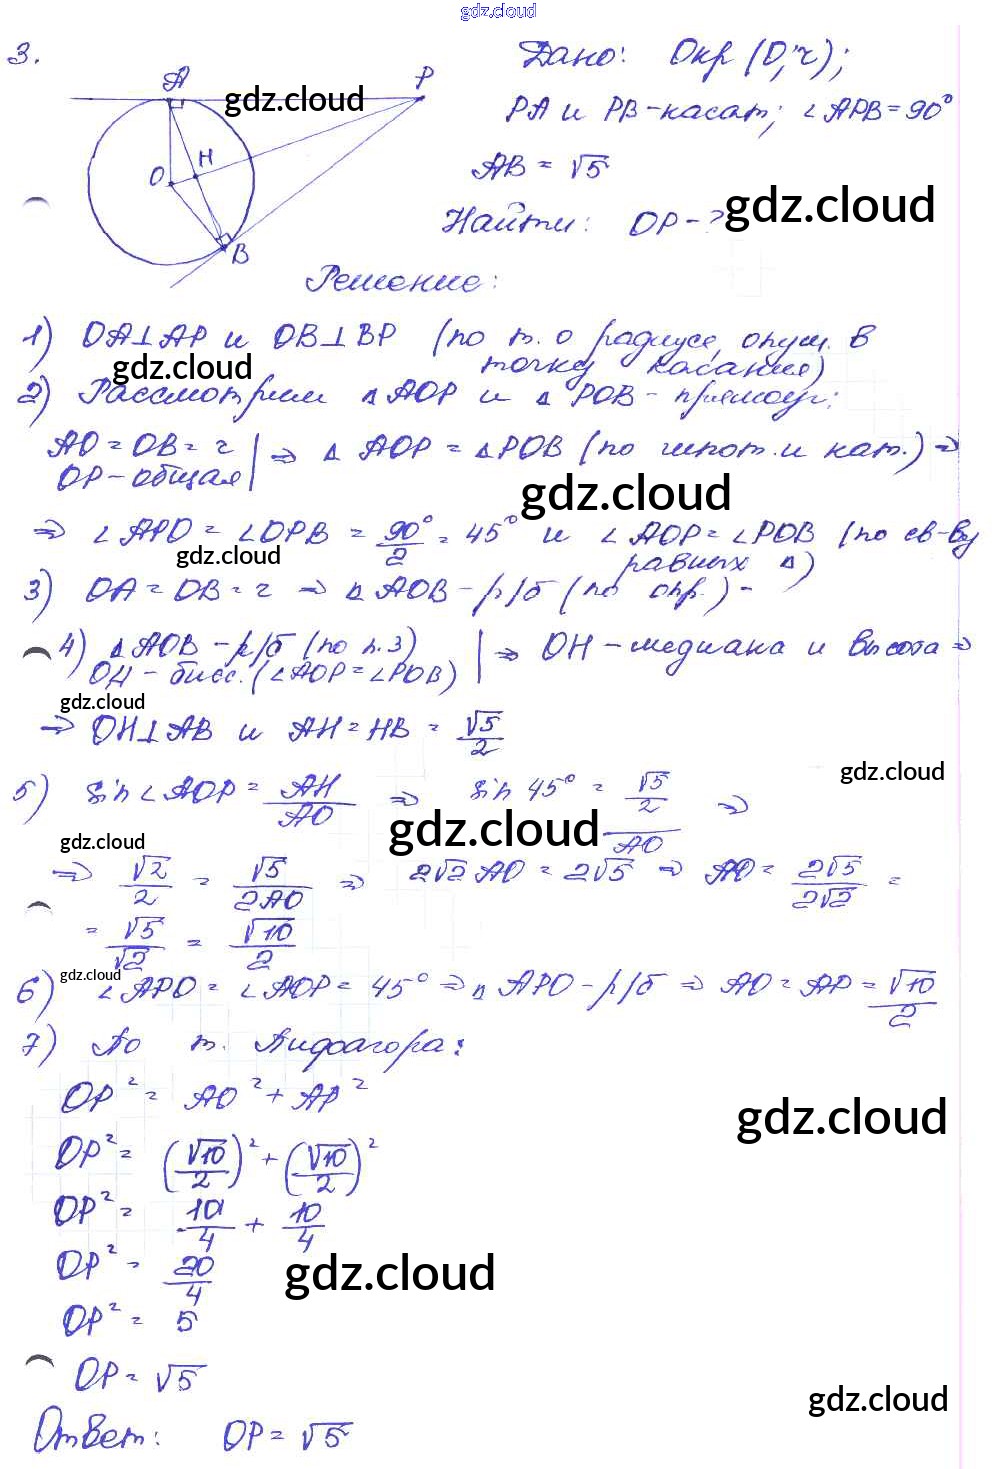 gdz.cloud
3.
Дано: Окр (O; r);
A
P
gdz.cloud
PA и PB - касат; ∠APB = 90°
O
H
B
AB = √5
Найти: OP - ?
gdz.cloud
Решение:
1) OA⊥AP и OB⊥BP (по т. о радиусе, опущ. в
точку касания)
gdz.cloud
2) Рассмотрим △AOP и △POB - прямоуг:
AO = OB = r | ⇒ △AOP = △POB (по гипот. и кат.) ⇒
OP - общая
gdz.cloud
⇒ ∠APO = ∠OPB = 90°/2 = 45° и ∠AOP = ∠POB (по св-ву
равных △)
gdz.cloud
3) OA = OB = r ⇒ △AOB - р/б (по опр.) -
4) △AOB - р/б (по п.3) | ⇒ OH - медиана и высота ⇒
OH - бисс. (∠AOP = ∠POB)
gdz.cloud
⇒ OH⊥AB и AH = HB = √5/2
gdz.cloud
5) sin∠AOP = AH/AO ⇒ sin 45° = (√5/2)/AO ⇒
gdz.cloud
gdz.cloud
⇒ √2/2 = √5/2AO ⇒ 2√2 AO = 2√5 ⇒ AO = 2√5/2√2 =
= √5/√2 = √10/2
gdz.cloud
6) ∠APO = ∠AOP = 45° ⇒ △APO - р/б ⇒ AO = AP = √10/2
7) По т. Пифагора:
OP² = AO² + AP²
gdz.cloud
OP² = (√10/2)² + (√10/2)²
OP² = 10/4 + 10/4
OP² = 20/4
gdz.cloud
OP² = 5
OP = √5
gdz.cloud
Ответ: OP = √5